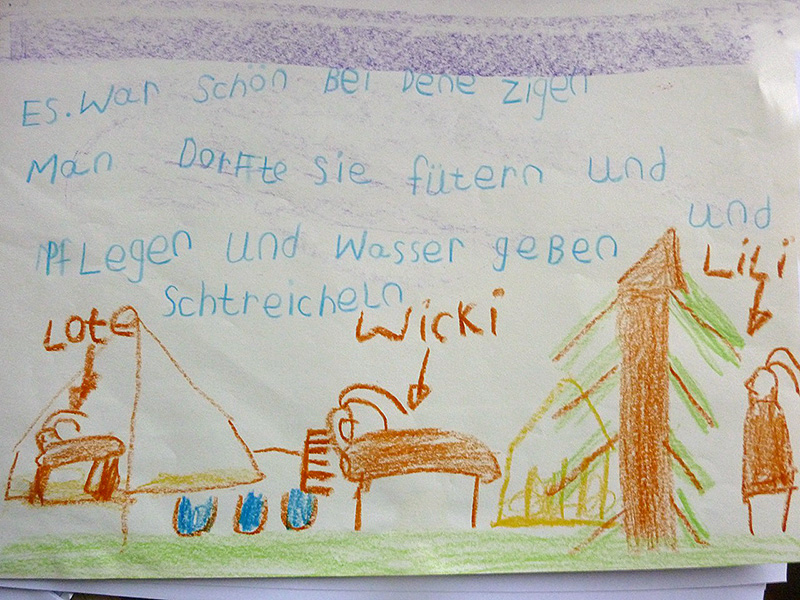 Es. war schön Bei Dene zigen
Man Dorfte sie fütern und
PfLegen und wasser geben und
Schtreicheln
Lote
Wicki
LiLi